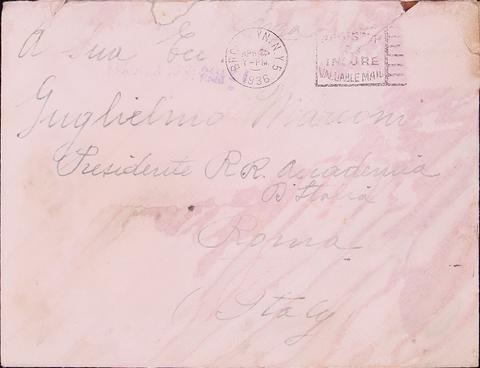 A Sua Ecc
BROOKLYN, N.Y. 5
APR 
7-PM
1936
REGISTER
OR
INSURE
VALUABLE MAIL
Guglielmo Marconi
Presidente R.R. Academia
D'Italia
Roma
Italy